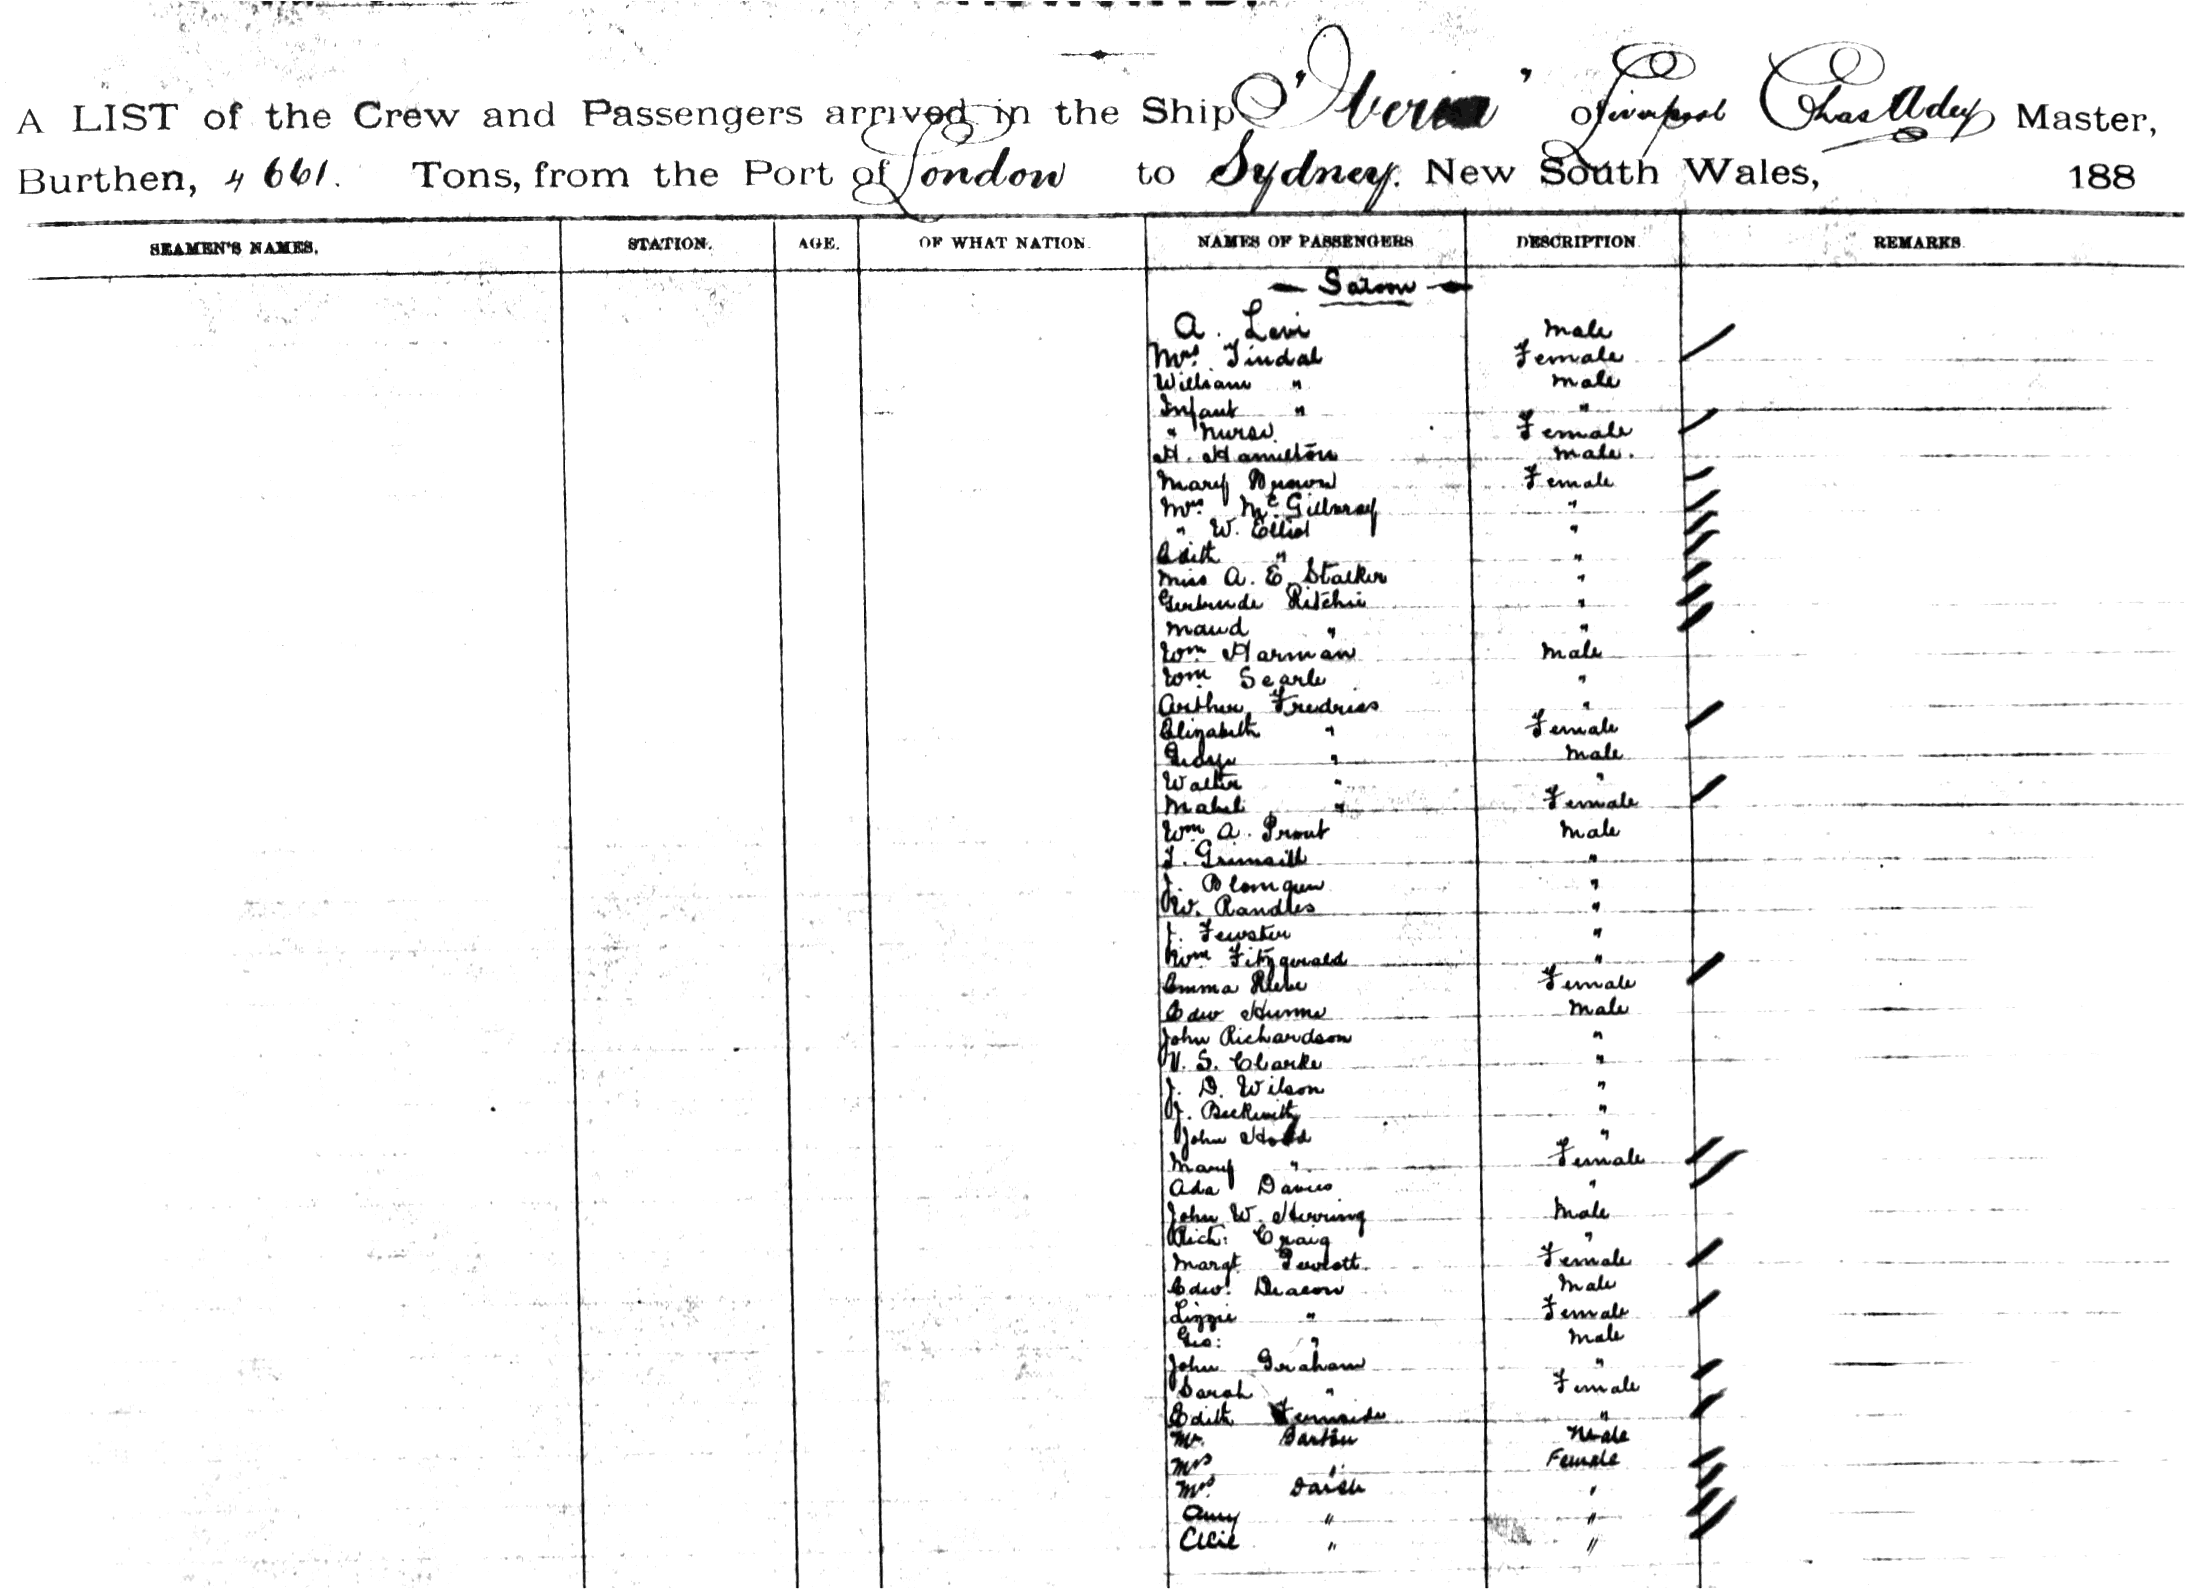 A LIST of the Crew and Passengers arrived in the Ship "Iberia" of Liverpool Chas Adey Master,
Burthen, 4661. Tons, from the Port of London to Sydney. New South Wales, 188
SEAMEN'S NAMES. STATION. AGE. OF WHAT NATION. NAMES OF PASSENGERS DESCRIPTION REMARKS
Saloon
A. Levi Male
Mrs. Tindal Female
William " Male
Infant " "
" Nurse Female
H. Hamilton Male.
Mary Brown Female
Mrs. McGillvray "
" W. Elliot "
Edith " "
Miss A. E. Stalker "
Gertrude Ritchie "
Maud " "
Wm. Harman Male
Wm. Searle "
Arthur Fredrics "
Elizabeth " Female
George " Male
Walter " "
Mabel " Female
Wm. A. Prout Male
"
J. Blomgren "
W. Randles "
J. Fewster "
Wm. Fitzgerald "
Emma Female
Edw Hume Male
John Richardson "
V. S. Clarke "
J. D. Wilson "
J. Beckwith "
John Hood "
Mary " Female
Ada Davies "
John W. Herring Male
Rich: Craig "
Margt. Female
Edw: Deacon Male
Lizzie " Female
Geo: " Male
John Graham "
Sarah " Female
Edith "
Mr. Male
Mrs " Female
Mrs. "
Amy " "
" "